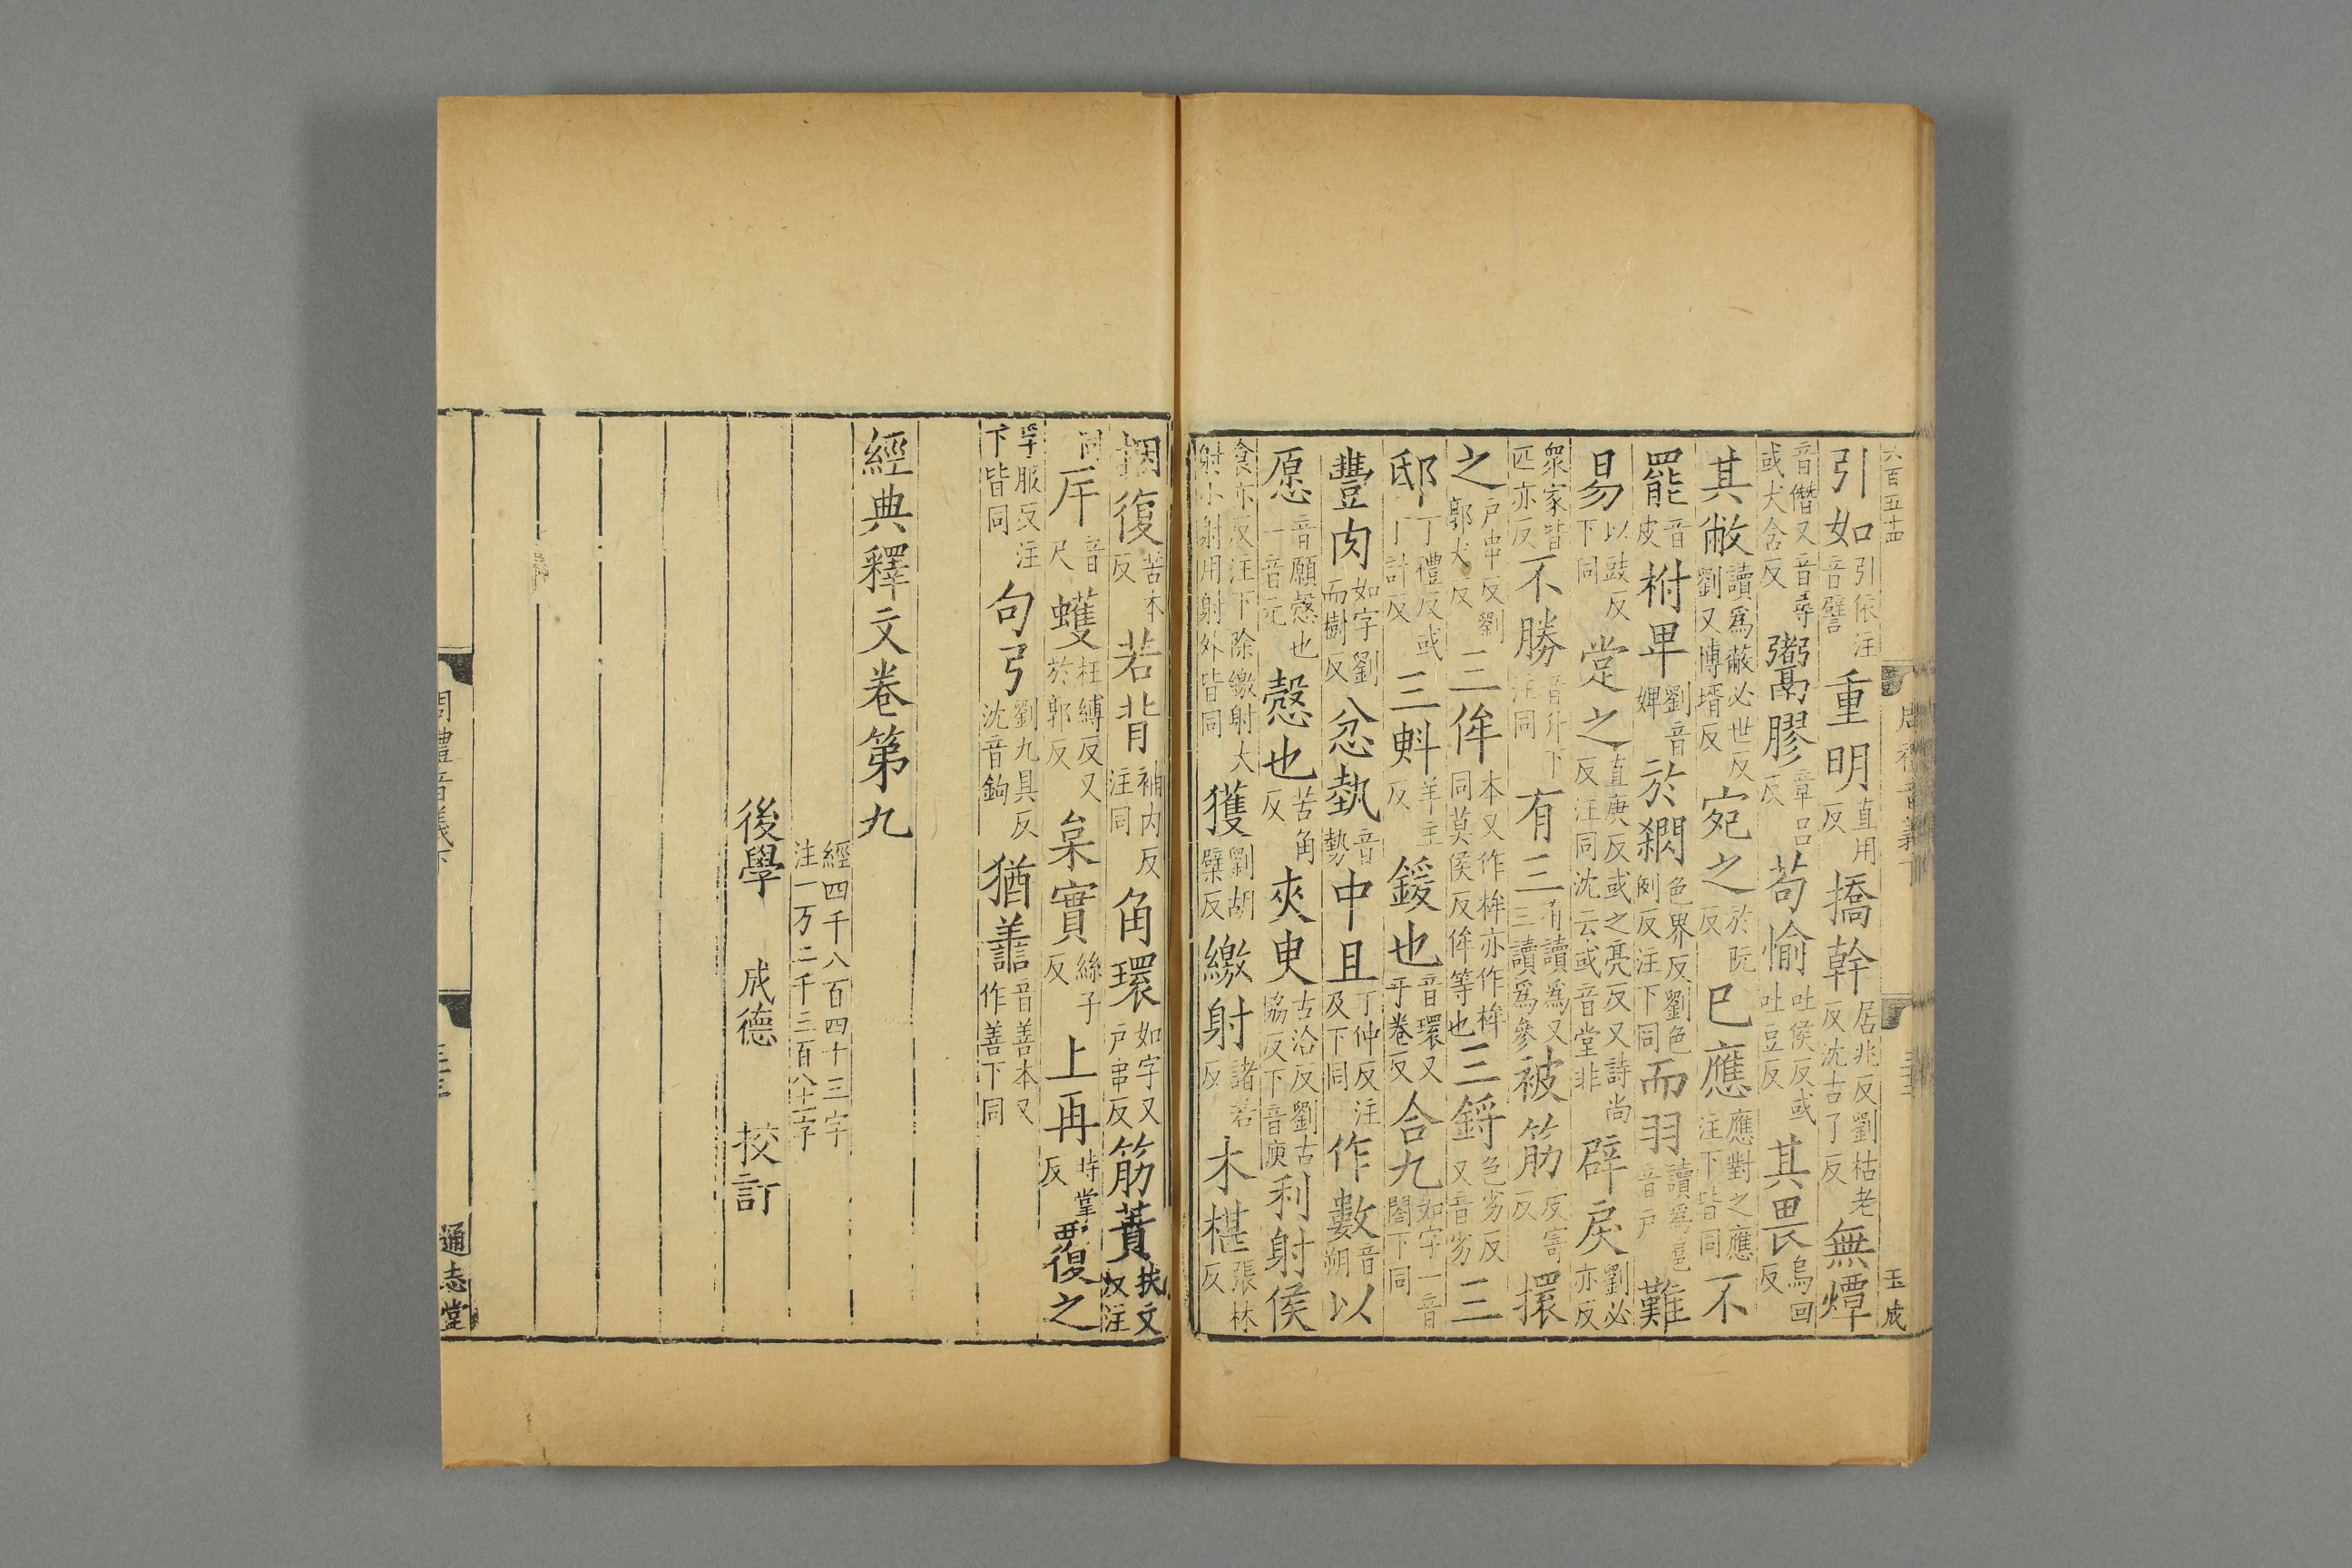 六百五十四
玉成
引如引依注音譬重明直用反撟幹居兆反劉枯老反沈古了反無燂
音僭又音尋或犬含反鬻膠章呂反苟愉吐侯反或吐豆反其畏烏回反
其敝讀爲蔽必世反劉又博壻反宛之於阮反巳應應對之應注下皆同不
罷音皮柎畢劉音婢於閷色界反劉色例反注下同而羽讀爲扈音戸難
易以豉反下同定之直庚反或之亮反又詩尚反注同沈云或音堂非辟戾劉必亦反
衆家皆匹亦反不勝音升下注同有三有讀爲又三讀爲參被筋皮寄反擐
之戸串反劉郭犬反三侔本又作桙亦作桙同莫侯反侔等也三鋝色劣反又音劣三
邸丁禮反或丁計反三㪺羊主反鍰也音環又于卷反合九如字一音閤下同
豐肉如字劉而樹反忿埶音勢中且丁仲反注及下同作數音朔以
愿音願慤也一音元慤也苦角反夾臾古洽反劉古協反下音庾利射侯
食亦反注下除繳射大射小射用射射外皆同獲劉胡檗反繳射諸若反木椹張林反
捆復苦本反若背補内反注同角環如字又戸串反筋蕡扶文反注
同㡿音尺蠖枉縛反又於郭反枲實絲子反上再時掌反覆之
孚服反注下皆同句弓劉九具反沈音鉤猶譱音善本又作善下同
經典釋文卷第九
經四千八百四十三字
注一万二千三百八十二字
後學 成德 挍訂
通志堂